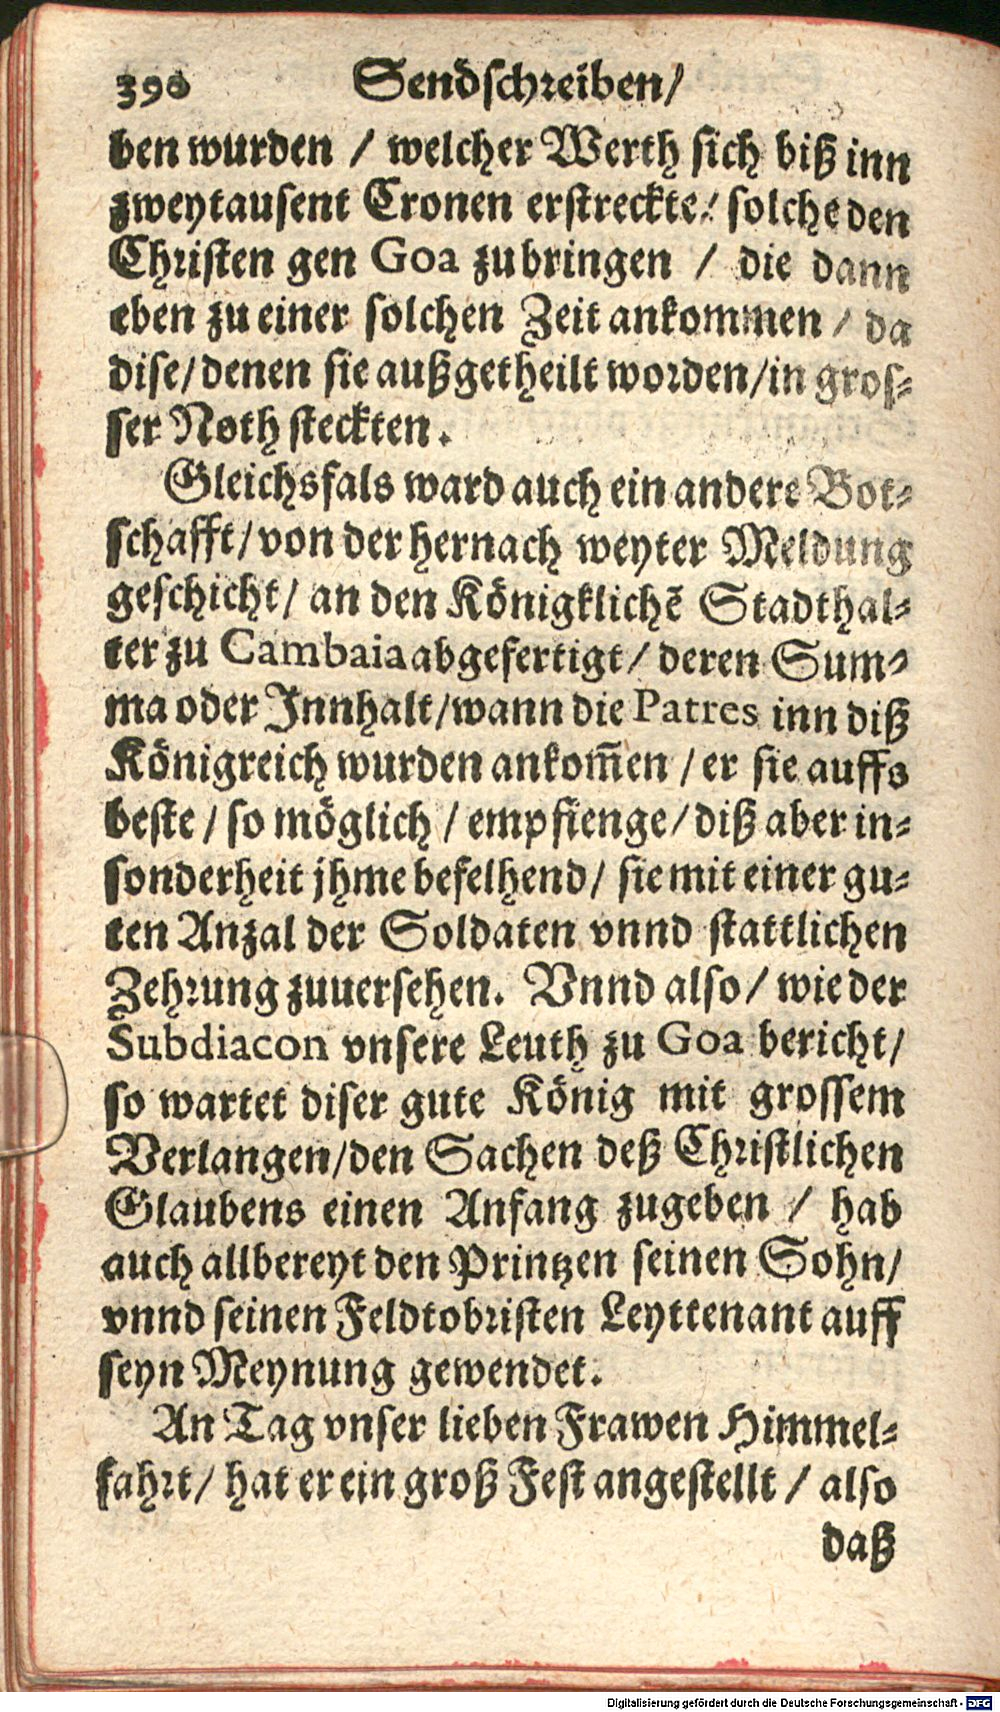 390 Sendschreiben/
ben wurden / welcher Werth sich biß inn
zweytausent Cronen erstreckte/ solche den
Christen gen Goa zubringen / die dann
eben zu einer solchen Zeit ankommen / da
dise/denen sie außgetheilt worden/in gros-
ser Noth steckten.
Gleichsfals ward auch ein andere Bot-
schafft/von der hernach weyter Meldung
geschicht/ an den Königklichē Stadthal-
ter zu Cambaia abgefertigt/ deren Sum-
ma oder Innhalt/wann die Patres inn diß
Königreich wurden ankom̄en /er sie auffs
beste / so möglich / empfienge/ diß aber in-
sonderheit jhme befelhend/ sie mit einer gu-
ten Anzal der Soldaten vnnd stattlichen
Zehrung zuuersehen. Vnnd also/ wie der
Subdiacon vnsere Leuth zu Goa bericht/
so wartet diser gute König mit grossem
Verlangen/den Sachen deß Christlichen
Glaubens einen Anfang zugeben / hab
auch allbereyt den Printzen seinen Sohn/
vnnd seinen Feldtobristen Leyttenant auff
seyn Meynung gewendet.
An Tag vnser lieben Frawen Himmel-
fahrt/ hat er ein groß Fest angestellt / also
daß
Digitalisierung gefördert durch die Deutsche Forschungsgemeinschaft - DFG